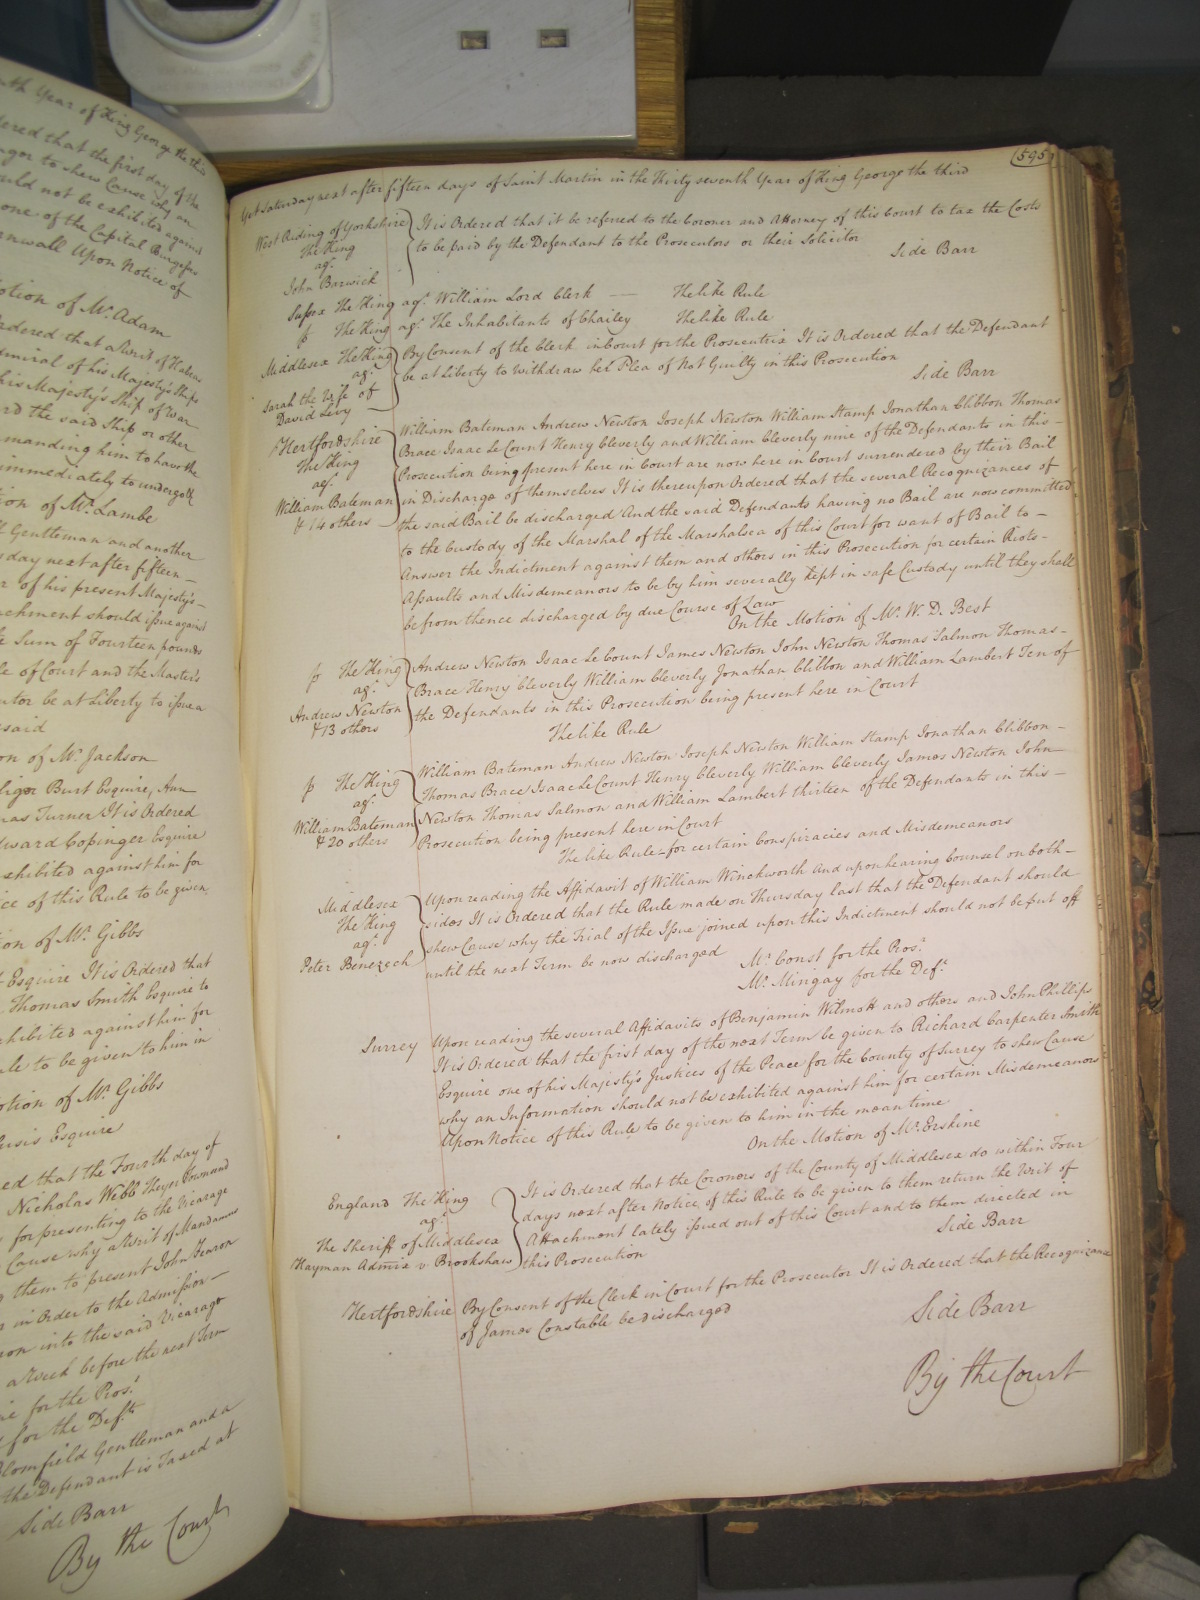 nth Year of King George the third
dered that the first day of the
ngor to shew Cause why an
ould not be exhibited against
one of the Capital Burgesses
rnwall Upon Notice of
otion of Mr. Adam
rdered that a Writ of Habeas
dmiral of his Majesty's Ships
his Majesty's Ship of War
rd the said Ship or other
manding him to have the
immediately to undergo &c
ion of Mr. Lambe
Gentleman and another
day next after fifteen –
r of his present Majesty's –
achment should issue against
e Sum of Fourteen pounds
le of Court and the Master's
utor be at Liberty to issue a
said
on of Mr. Jackson
liger Burt Esquire, Ann
mas Turner It is Ordered
dward Copinger Esquire
exhibited against him for
ice of this Rule to be given
ion of Mr. Gibbs
Esquire It is Ordered that
Thomas Smith Esquire to
xhibited against him for
ule to be given to him in
otion of Mr. Gibbs
usis Esquire
ed that the Fourth day of
Nicholas Webb Thayer Townsend
for presenting to the Vicarage
Cause why a Writ of Mandamus
g them to present John Fearon
r in Order to the Admission –
on into the said Vicarage
a Week before the next Term
ne for the Pros.r
for the Def.t
Blomfield Gentleman and a
the Defendant is Taxed at
Side Barr
By the Court
595
Yet Saturday next after fifteen days of Saint Martin in the Thirty seventh Year of King George the third
West Riding of Yorkshire It is Ordered that it be referred to the Coroner and Attorney of this Court to tax the Costs
The King to be paid by the Defendant to the Prosecutors or their Solicitor
ag.t Side Barr
John Barwick
Sussex The King ag.t William Lord Clerk — The like Rule
p The King ag.t The Inhabitants of Chailey The like Rule
Middlesex The King By Consent of the Clerk in Court for the Prosecutrix It is Ordered that the Defendant
ag.t be at Liberty to withdraw her Plea of Not Guilty in this Prosecution
Sarah the Wife of Side Barr
David Levy
Hertfordshire William Bateman Andrew Newton Joseph Newton William Stamp Jonathan Clibbon Thomas
The King Brace Isaac Le Count Henry Cleverly and William Cleverly nine of the Defendants in this –
ag.t Prosecution being present here in Court are now here in Court surrendered by their Bail
William Bateman in Discharge of themselves It is thereupon Ordered that the several Recognizances of
& 14 others the said Bail be discharged And the said Defendants having no Bail are now committed
to the Custody of the Marshal of the Marshalsea of this Court for want of Bail to –
Answer the Indictment against them and others in this Prosecution for certain Riots –
Assaults and Misdemeanors to be by him severally kept in safe Custody until they shall
be from thence discharged by due Course of Law
On the Motion of Mr. W. D. Best
p The King Andrew Newton Isaac Le Count James Newton John Newton Thomas Salmon Thomas –
ag.t Brace Henry Cleverly William Cleverly Jonathan Clibbon and William Lambert Ten of
Andrew Newton the Defendants in this Prosecution being present here in Court
& 13 others The like Rule
p The King William Bateman Andrew Newton Joseph Newton William Stamp Jonathan Clibbon –
ag.t Thomas Brace Isaac Le Count Henry Cleverly William Cleverly James Newton John
William Bateman Newton Thomas Salmon and William Lambert thirteen of the Defendants in this –
& 20 others Prosecution being present here in Court
The like Rule – for certain Conspiracies and Misdemeanors
Middlesex Upon reading the Affidavit of William Winckworth And upon hearing Counsel on both –
The King sides It is Ordered that the Rule made on Thursday last that the Defendant should
ag.t shew Cause why the Trial of the Issue joined upon this Indictment should not be put off
Peter Benezech until the next Term be now discharged
Mr. Const for the Pros.r
Mr. Mingay for the Def.t
Surrey Upon reading the several Affidavits of Benjamin Wilmott and others and John Phillips
It is Ordered that the first day of the next Term be given to Richard Carpenter Smith
Esquire one of his Majesty's Justices of the Peace for the County of Surrey to shew Cause
why an Information should not be exhibited against him for certain Misdemeanors
Upon Notice of this Rule to be given to him in the mean time
On the Motion of Mr. Erskine
England The King It is Ordered that the Coroners of the County of Middlesex do within Four
ag.t days next after Notice of this Rule to be given to them return the Writ of
The Sheriff of Middlesex Attachment lately issued out of this Court and to them directed in
Hayman Admix v. Brookshaw this Prosecution
Side Barr
Hertfordshire By Consent of the Clerk in Court for the Prosecutor It is Ordered that the Recognizance
of James Constable be discharged
Side Barr
By the Court